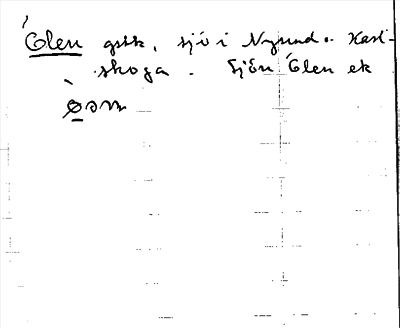 Ölen gsk, sjö i Nysund o. Karl-
skoga. Sjön Ölen ek